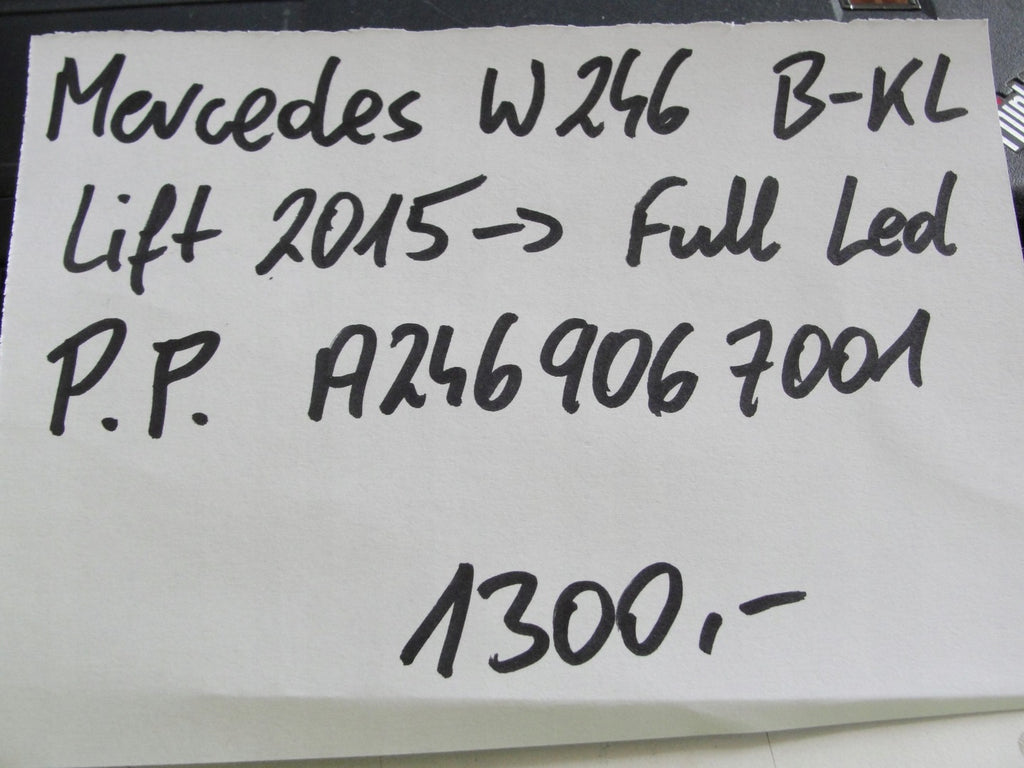 Mercedes W246 B-KL
Lift 2015-> Full Led
P.P. A246 906 7001
1300,-